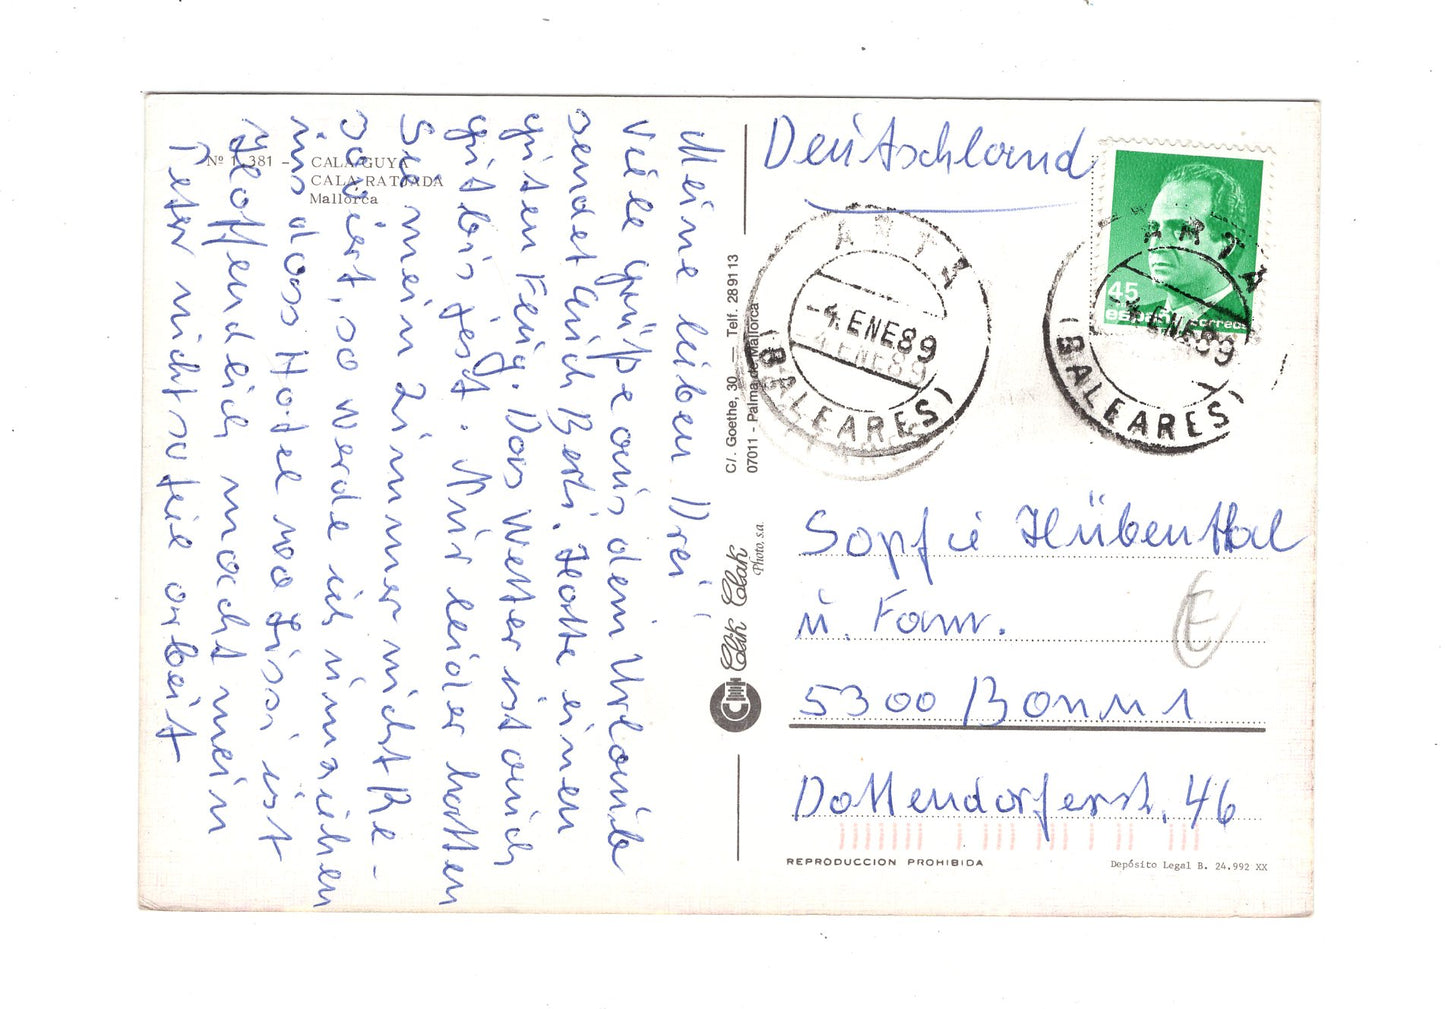 Nº 1.381 - CALA GUYA
CALA RATJADA
Mallorca
Meine lieben Drei,
viele grüße aus dem Urlaub
sendet Euch Berti. Hatte einen
guten Flug. Das Wetter ist auch
gut bis jest. Mir leider hatten
Sie mein Zimmer nicht Re-
saviert, so werde ich umziehen
ins dass Hotel wo Sissi ist
Hoffendlich macht mein
Peter nicht so fiel arbeit
C/. Goethe, 30 — Telf. 28 91 13
07011 - Palma de Mallorca
Clik Clak
Photo, s.a.
Deutschland
45
españa correos
ARTA
-4.ENE89
(BALEARES)
ARTA
-4.ENE89
(BALEARES)
Sopfie Hübenthal
u. Fam.
E
5300 Bonn 1
Dottendorferstr. 46
REPRODUCCION PROHIBIDA
Depósito Legal B. 24.992 XX